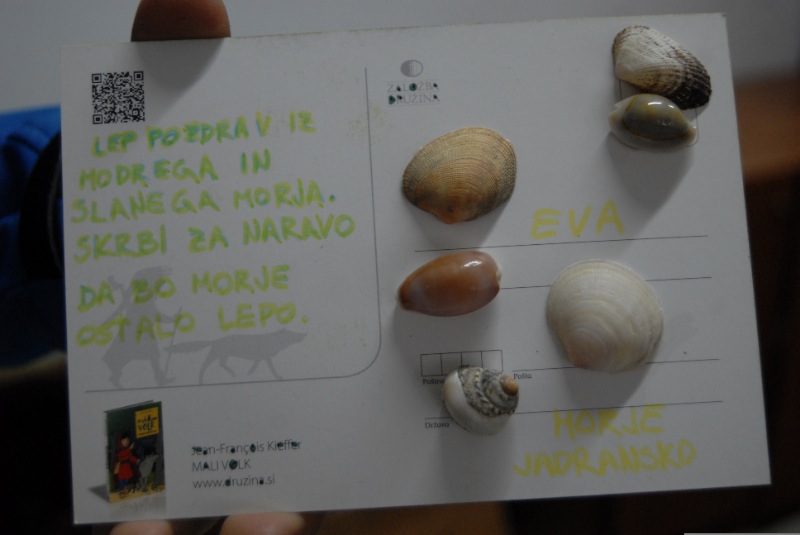 LEP POZDRAV IZ
MODREGA IN
SLANEGA MORJA.
SKRBI ZA NARAVO
DA BO MORJE
OSTALO LEPO.
Jean-François Kieffer
MALI VOLK
www.druzina.si
ZALOŽBA
DRUŽINA
EVA
Pošta
Država
MORJE
JADRANSKO